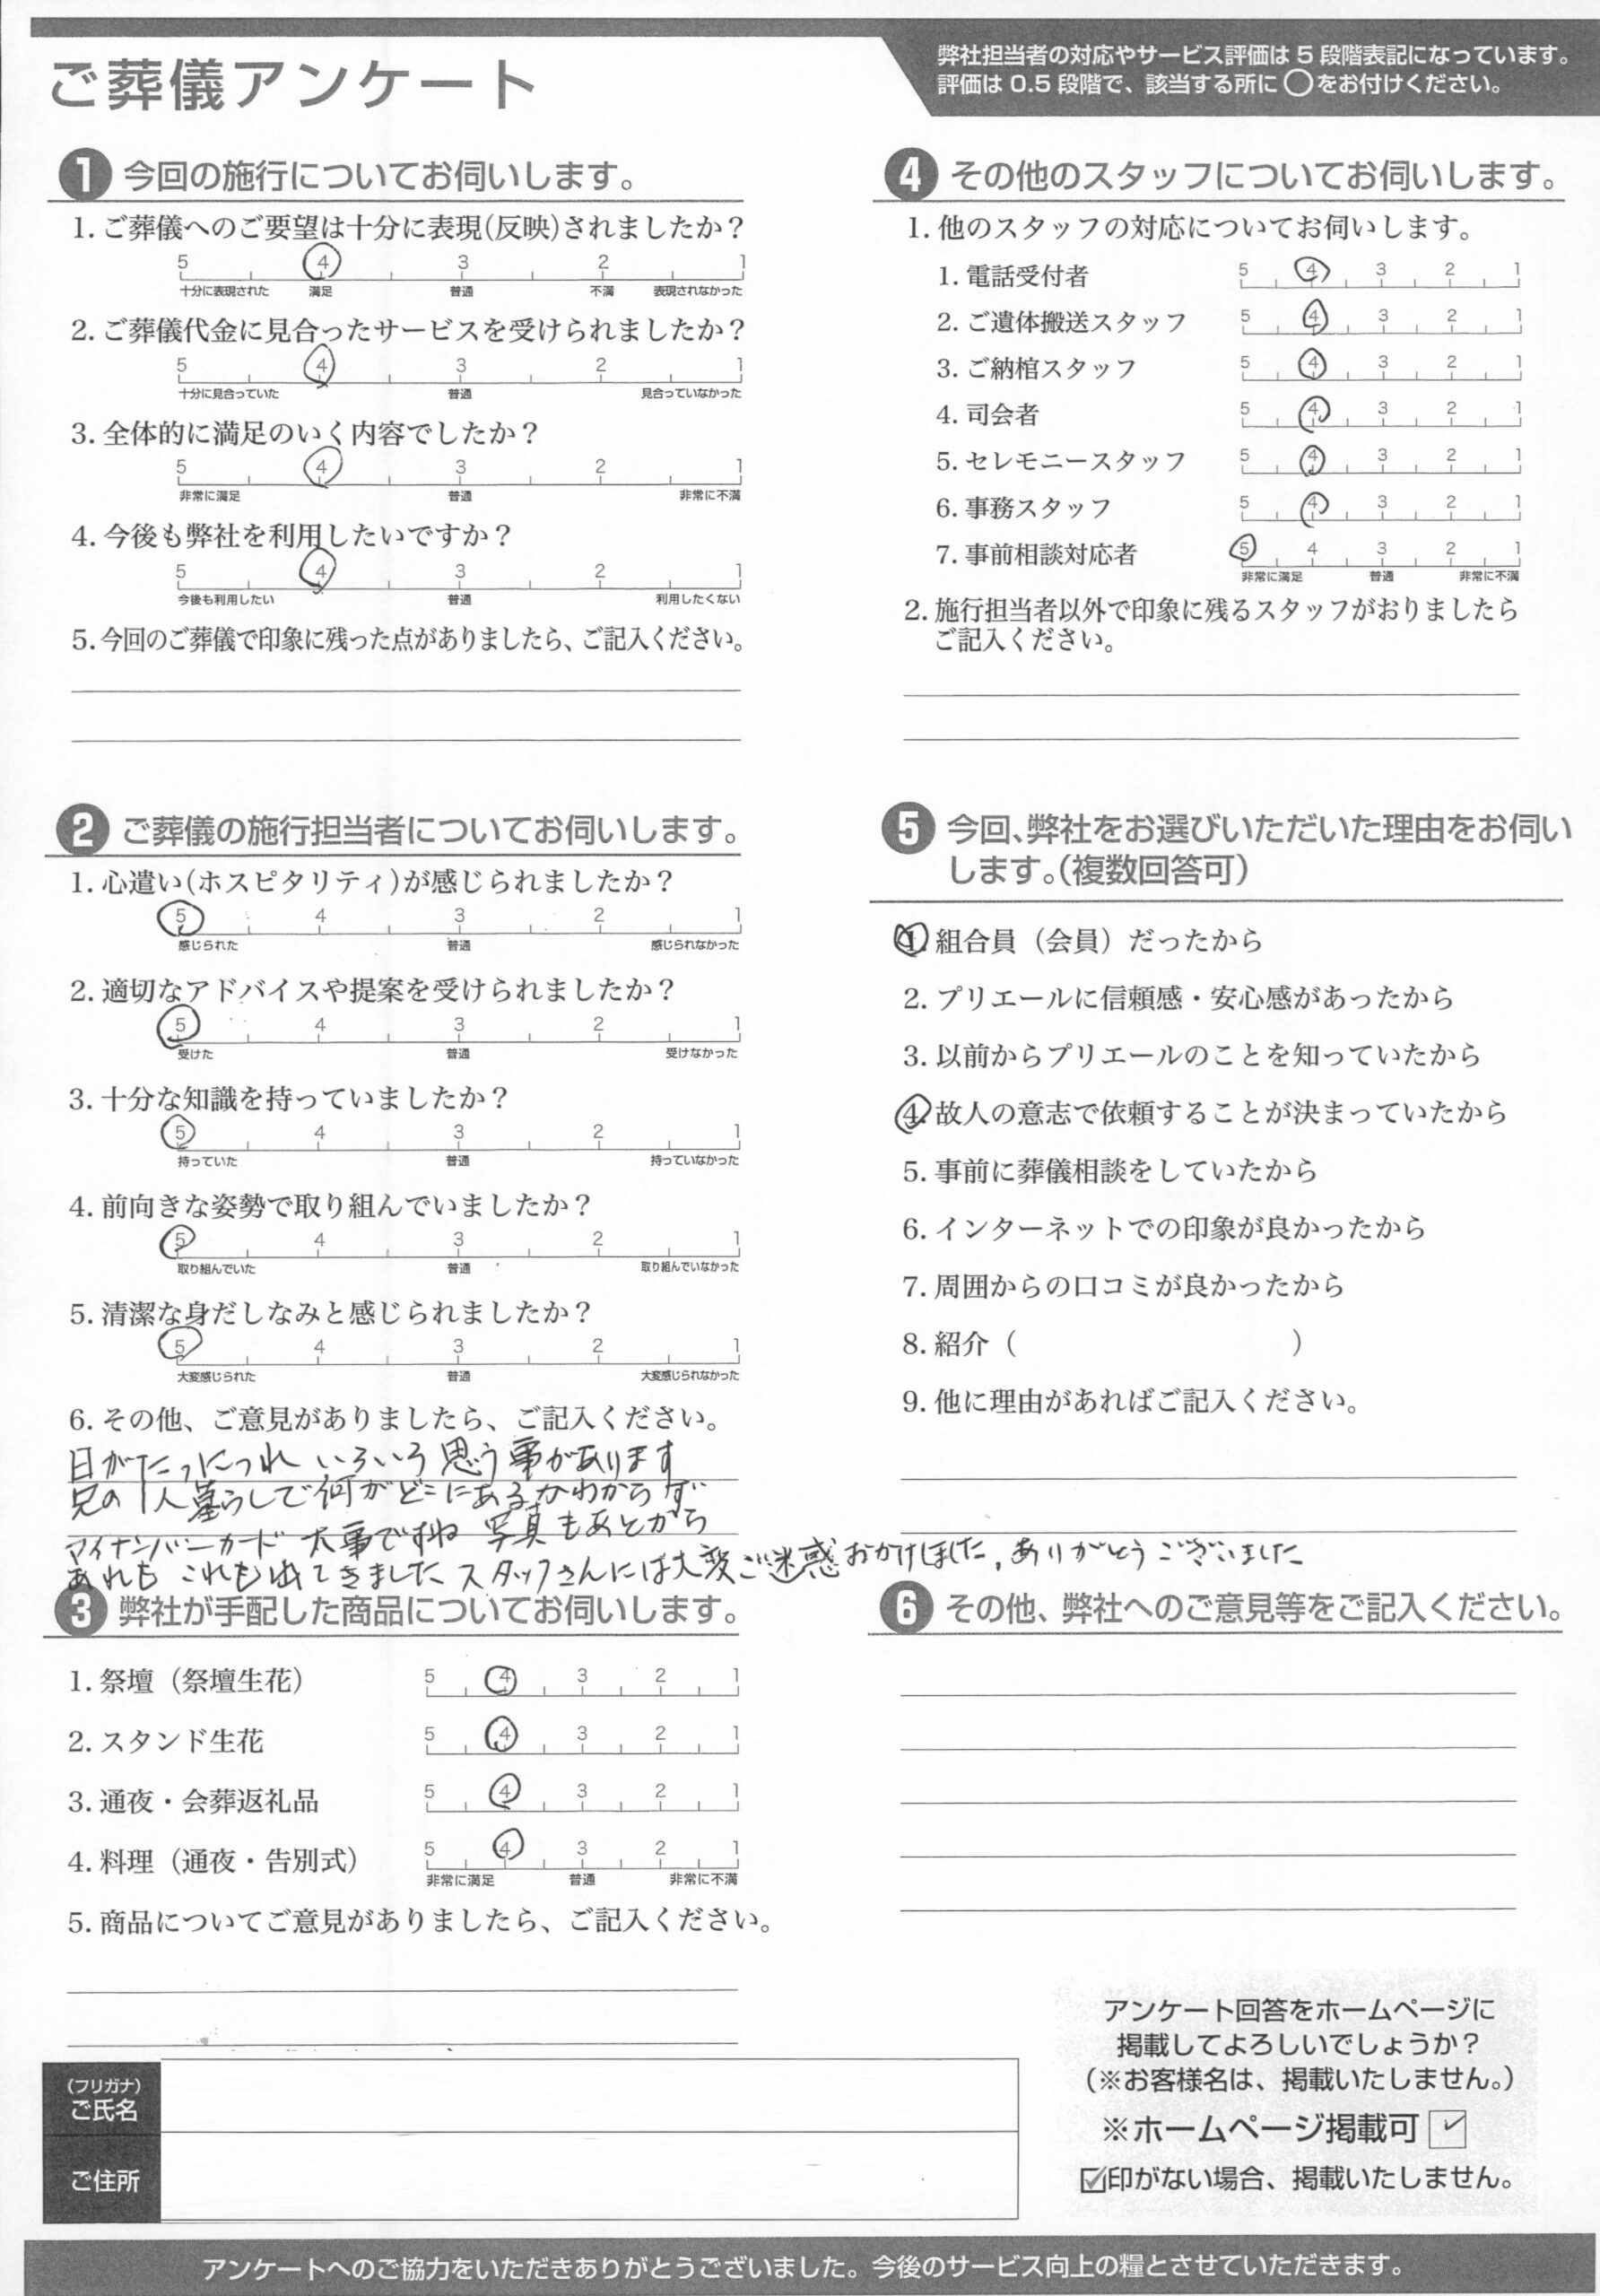 ご葬儀アンケート
弊社担当者の対応やサービス評価は 5 段階表記になっています。
評価は 0.5 段階で、該当する所に ◯をお付けください。
1 今回の施行についてお伺いします。
1. ご葬儀へのご要望は十分に表現(反映)されましたか?
5 4 3 2 1
十分に表現された 満足 普通 不満 表現されなかった
2. ご葬儀代金に見合ったサービスを受けられましたか?
5 4 3 2 1
十分に見合っていた 普通 見合っていなかった
3. 全体的に満足のいく内容でしたか?
5 4 3 2 1
非常に満足 普通 非常に不満
4. 今後も弊社を利用したいですか?
5 4 3 2 1
今後も利用したい 普通 利用したくない
5. 今回のご葬儀で印象に残った点がありましたら、ご記入ください。
2 ご葬儀の施行担当者についてお伺いします。
1. 心遣い(ホスピタリティ)が感じられましたか?
5 4 3 2 1
感じられた 普通 感じられなかった
2. 適切なアドバイスや提案を受けられましたか?
5 4 3 2 1
受けた 普通 受けなかった
3. 十分な知識を持っていましたか?
5 4 3 2 1
持っていた 普通 持っていなかった
4. 前向きな姿勢で取り組んでいましたか?
5 4 3 2 1
取り組んでいた 普通 取り組んでいなかった
5. 清潔な身だしなみと感じられましたか?
5 4 3 2 1
大変感じられた 普通 大変感じられなかった
6. その他、ご意見がありましたら、ご記入ください。
日がたつにつれ いろいろ 思う事があります
兄の 1人暮らしで何がどこにあるかわからず
マイナンバーカード 大事ですね 写真もあとから
あれも これも出てきました スタッフさんには大変ご迷惑おかけしました, ありがとうございました
3 弊社が手配した商品についてお伺いします。
1. 祭壇（祭壇生花） 5 4 3 2 1
2. スタンド生花 5 4 3 2 1
3. 通夜・会葬返礼品 5 4 3 2 1
4. 料理（通夜・告別式） 5 4 3 2 1
非常に満足 普通 非常に不満
5. 商品についてご意見がありましたら、ご記入ください。
4 その他のスタッフについてお伺いします。
1. 他のスタッフの対応についてお伺いします。
1. 電話受付者 5 4 3 2 1
2. ご遺体搬送スタッフ 5 4 3 2 1
3. ご納棺スタッフ 5 4 3 2 1
4. 司会者 5 4 3 2 1
5. セレモニースタッフ 5 4 3 2 1
6. 事務スタッフ 5 4 3 2 1
7. 事前相談対応者 5 4 3 2 1
非常に満足 普通 非常に不満
2. 施行担当者以外で印象に残るスタッフがおりましたら
ご記入ください。
5 今回、弊社をお選びいただいた理由をお伺い
します。(複数回答可)
1. 組合員（会員）だったから
2. プリエールに信頼感・安心感があったから
3. 以前からプリエールのことを知っていたから
4. 故人の意志で依頼することが決まっていたから
5. 事前に葬儀相談をしていたから
6. インターネットでの印象が良かったから
7. 周囲からの口コミが良かったから
8. 紹介（ ）
9. 他に理由があればご記入ください。
6 その他、弊社へのご意見等をご記入ください。
アンケート回答をホームページに
掲載してよろしいでしょうか?
(※お客様名は、掲載いたしません。)
※ホームページ掲載可 ☑
☑印がない場合、掲載いたしません。
(フリガナ)
ご氏名
ご住所
アンケートへのご協力をいただきありがとうございました。今後のサービス向上の糧とさせていただきます。